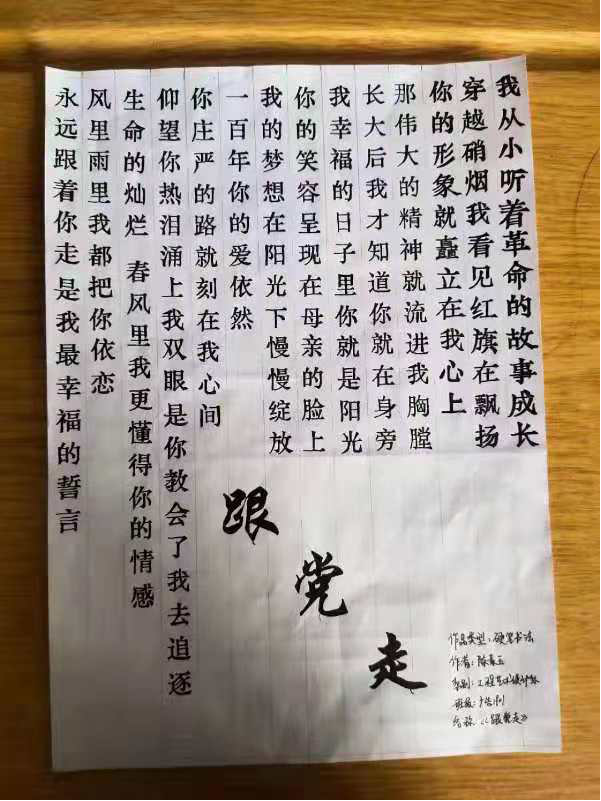 我从小听着革命的故事成长
穿越硝烟我看见红旗在飘扬
你的形象就矗立在我心上
那伟大的精神就流进我胸膛
长大后我才知道你就在身旁
我幸福的日子里你就是阳光
你的笑容呈现在母亲的脸上
我的梦想在阳光下慢慢绽放
一百年你的爱依然
你庄严的路就刻在我心间
仰望你热泪涌上我双眼是你教会了我去追逐
生命的灿烂 春风里我更懂得你的情感
风里雨里我都把你依恋
永远跟着你走是我最幸福的誓言
跟党走
作品类型：硬笔书法
作者：陈
系别：工程艺术设计系
班级：广告
名称：《跟党走》